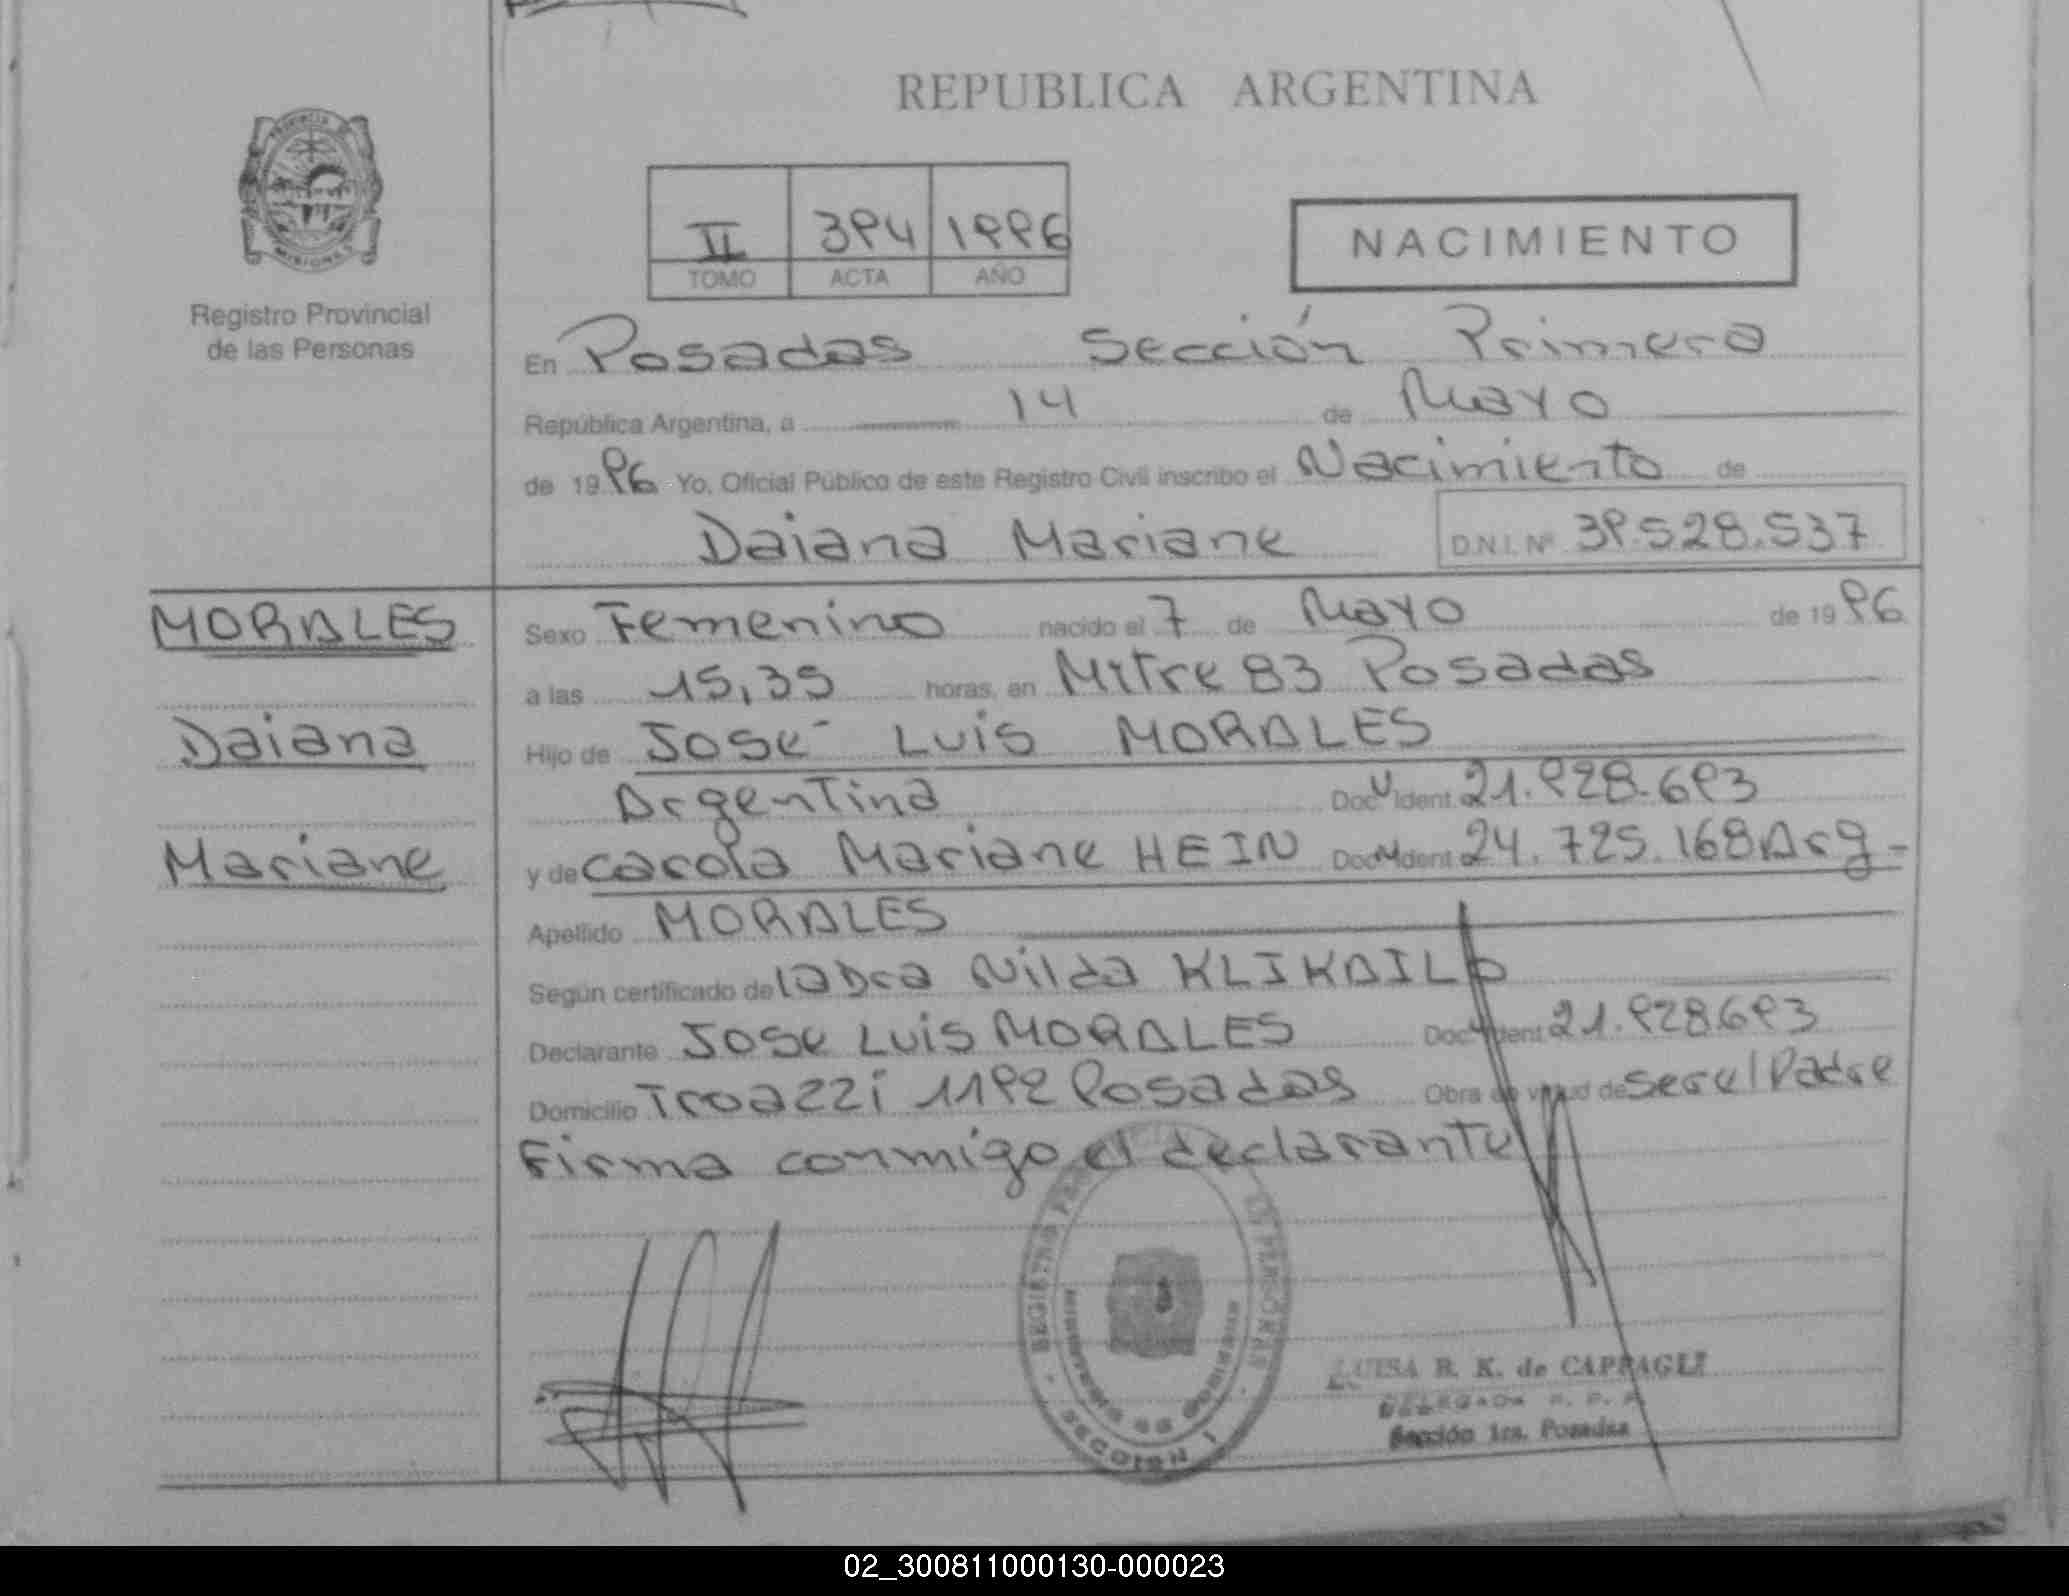 REPUBLICA ARGENTINA
PROVINCIA DE
MISIONES
Registro Provincial
de las Personas
II 394 1996
TOMO ACTA AÑO
NACIMIENTO
En Posadas Sección Primera
República Argentina, a 14 de Mayo
de 1996 Yo, Oficial Público de este Registro Civil inscribo el Nacimiento de
Daiana Mariane D.N.I. Nº 39.528.537
MORALES
Daiana
Mariane
Sexo Femenino nacido el 7 de Mayo de 1996
a las 15,35 horas, en Mitre 83 Posadas
Hijo de José Luis MORALES
Argentina Doc U Ident 21.928.693
y de Carola Mariane HEIN Doc Ident 24.725.168 Arg -
Apellido MORALES
Según certificado de la Dra Nilda
Declarante Jose Luis MORALES Doc Ident 21.928.693
Domicilio 1192 Posadas Obra en virtud de ser el Padre
Firma conmigo el declarante
REGISTRO PERSONAS
SECCION 1
LUISA R. K. de
DELEGADA R. P. P.
Sección 1ra. Posadas
02_300811000130-000023